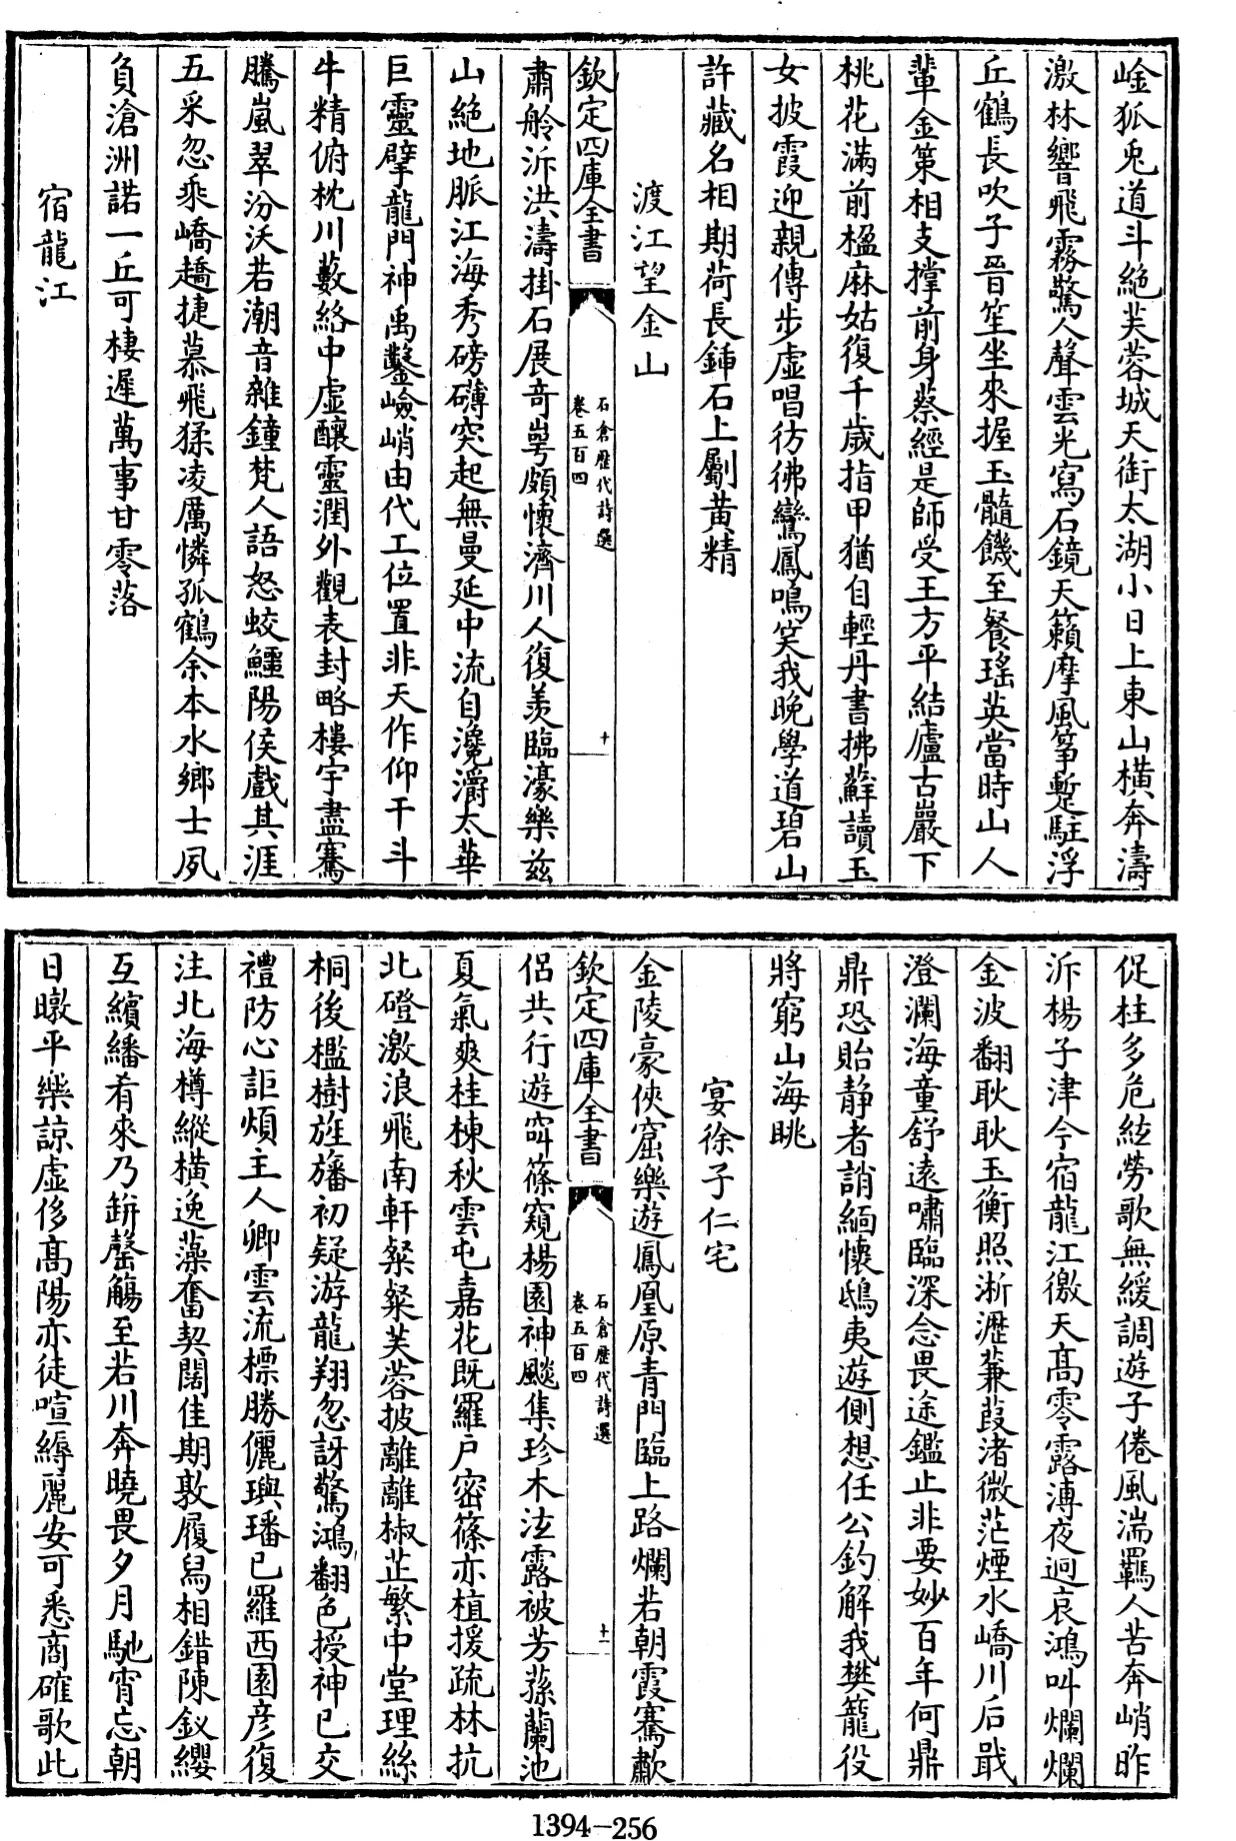 崯狐兎道斗絶芙蓉城天銜太湖小日上東山橫奔濤
激林響飛霧驚人聲雲光寫石鏡天籟摩風箏蹔駐浮
丘鶴長吹子晉笙坐來握玉髓饑至餐瑤英當時山人
輩金策相支撐前身蔡經是師受王方平結廬古巖下
桃花滿前楹麻姑復千歲指甲猶自輕丹書拂蘚讀玉
女披霞迎親傳步虛唱彷彿鸞鳳鳴笑我晚學道碧山
許藏名相期荷長鍤石上劚黃精
渡江望金山
欽定四庫全書
石倉歷代詩選
卷五百四
十
肅舲泝洪濤掛石展奇崿頗懷濟川人復羨臨濠樂茲
山絶地脈江海秀磅礴突起無曼延中流自瀺灂太華
巨靈擘龍門神禹鑿嶮峭由代工位置非天作仰干斗
牛精俯枕川藪絡中虛釀靈潤外觀表封略樓宇盡騫
騰嵐翠汾沃若潮音雜鐘梵人語怒蛟鱷陽侯戲其涯
五采忽乘嶠趫捷慕飛猱凌厲憐孤鶴余本水鄉士夙
負滄洲諾一丘可棲遲萬事甘零落
宿龍江
促柱多危絃勞歌無緩調遊子倦風湍羈人苦奔峭昨
泝楊子津今宿龍江徼天高零露漙夜迥哀鴻叫爛爛
金波翻耿耿玉衡照淅瀝蒹葭渚微茫煙水嶠川后戢
澄瀾海童舒遠嘯臨深念畏途鑑止非要妙百年何鼎
鼎恐貽靜者誚緬懷鴟夷遊側想任公釣解我樊籠役
將窮山海眺
宴徐子仁宅
金陵豪俠窟樂遊鳳凰原青門臨上路爛若朝霞騫歡
欽定四庫全書
石倉歷代詩選
卷五百四
十一
侶共行遊窈篠窺楊園神飈集珍木泫露被芳蓀蘭池
夏氣爽桂棟秋雲屯嘉花既羅户密篠亦植援疏林抗
北磴激浪飛南軒粲粲芙蓉披離離椒芷繁中堂理絲
桐後檻樹旌旛初疑游龍翔忽訝驚鴻翻色授神已交
禮防心詎煩主人卿雲流標勝儷璵璠已羅西園彦復
注北海樽縱橫逸藻奮契闊佳期敦履舄相錯陳釵纓
互繽繙肴來乃缾罄觴至若川奔曉畏夕月馳宵忘朝
日暾平樂諒虛侈高陽亦徒喧縟麗安可悉商確歌此
1394—256